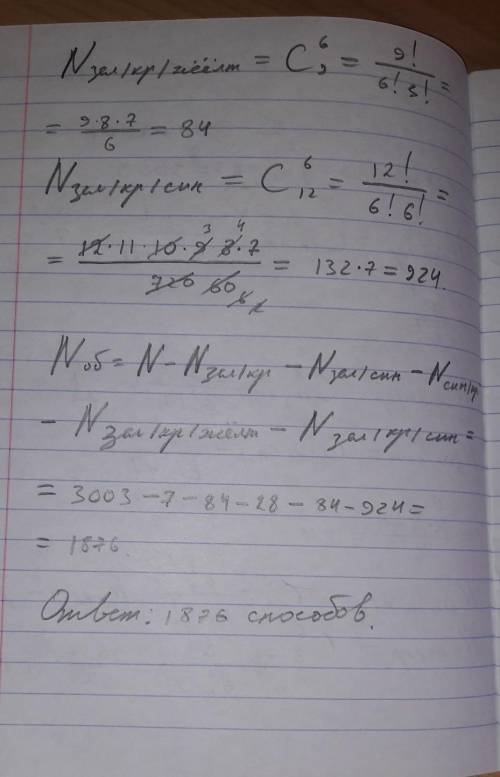 N зел/кр/жёлт = C₉⁶ = 9!/(6! 3!) =
= (9·8·7)/6 = 84
N зел/кр/син = C₁₂⁶ = 12!/(6! 6!) =
= (12·11·10·9·8·7)/720 = 132·7 = 924.
N об = N − N зел/кр − N зел/син − N син/кр
− N зел/кр/жёлт − N зел/кр/син =
= 3003 − 7 − 84 − 28 − 84 − 924 =
= 1876.
Ответ: 1876 способов.